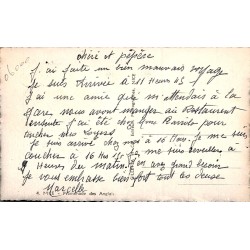 chéri et pépère
J'ai faite un bien mauvais voyage
Je suis Arrivée à 11 Heures 45
J'ai une amie que m'attendais à la
Gare nous avont manger au Restaurant
ensuite J'ai été chez Mme pour
coucher
Je suis arrivé chez moi à 16 Heu. Je me suis
coucher à 16 Heu et Je me suis reveiller à
Heures du matin. J'en avez grand besoin
Je vous embrasse bien fort tout les deux
Marcelle
Promenade des Anglais